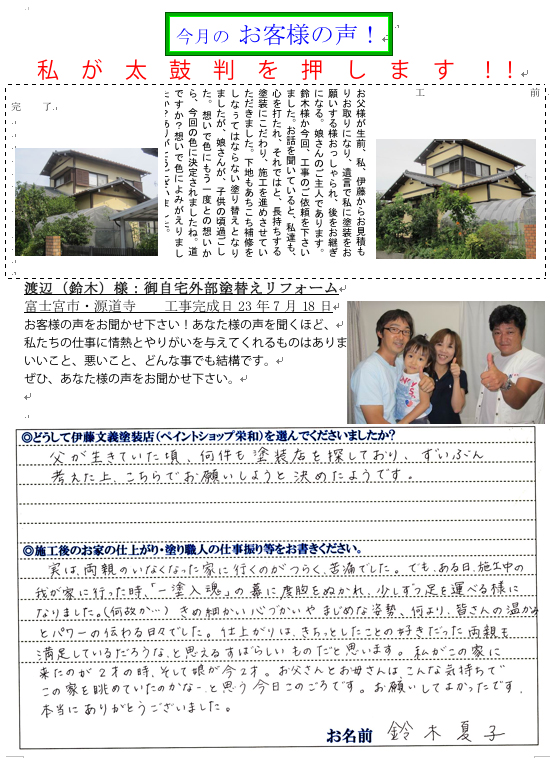 今月の お客様の声！
私が太鼓判を押します！！
工　前
完　了
お父様が生前、私　伊藤からお見積も
りお取りになり、遺言で私に塗装をお
願いする様おっしゃられ、後をお継ぎ
になる。娘さんのご主人であります。
鈴木様か今回、工事のご依頼を下さい
ました。お話を聞いていると、私達も、
心を打たれ、それではと、長持ちする
塗装にこだわり、施工を進めさせてい
ただきました。下地もあちこち補修を
しなうてはならない塗り替えとなり
ましたが、娘さんが、子供の頃過ごし
た。想いで色にもう一度との想いか
ら、今回の色に決定されましたね。道
ですか？想いで色によみがえりまし
渡辺（鈴木）様：御自宅外部塗替えリフォーム
富士宮市・源道寺　工事完成日 23 年 7 月 18 日
お客様の声をお聞かせ下さい！あなた様の声を聞くほど、
私たちの仕事に情熱とやりがいを与えてくれるものはありま
いいこと、悪いこと、どんな事でも結構です。
ぜひ、あなた様の声をお聞かせ下さい。
◎どうして伊藤文義塗装店(ペイントショップ栄和)を選んでくださいましたか?
父が生きていた頃、何件も塗装店を探しており、ずいぶん
考えた上、こちらでお願いしようと決めたようです。
◎施工後のお家の仕上がり・塗り職人の仕事振り等をお書きください。
実は、両親のいなくなった家に行くのがつらく、苦痛でした。でも、ある日、施工中の
我が家に行った時、「一塗入魂」の幕に度胆をぬかれ、少しずつ足を運べる様に
なりました。(何故か…) きめ細かい心づかいや まじめな姿勢、何より、皆さんの温かさ
とパワーの伝わる日々でした。仕上がりは、きちっとしたことの好きだった両親も
満足しているだろうな、と思えるすばらしいものだと思います。私がこの家に
来たのが2才の時、そして娘が今2才。お父さんとお母さんは、こんな気持ちで
この家を眺めていたのかな…と思う今日このごろです。お願いしてよかったです。
本当にありがとうございました。
お名前 鈴木夏子